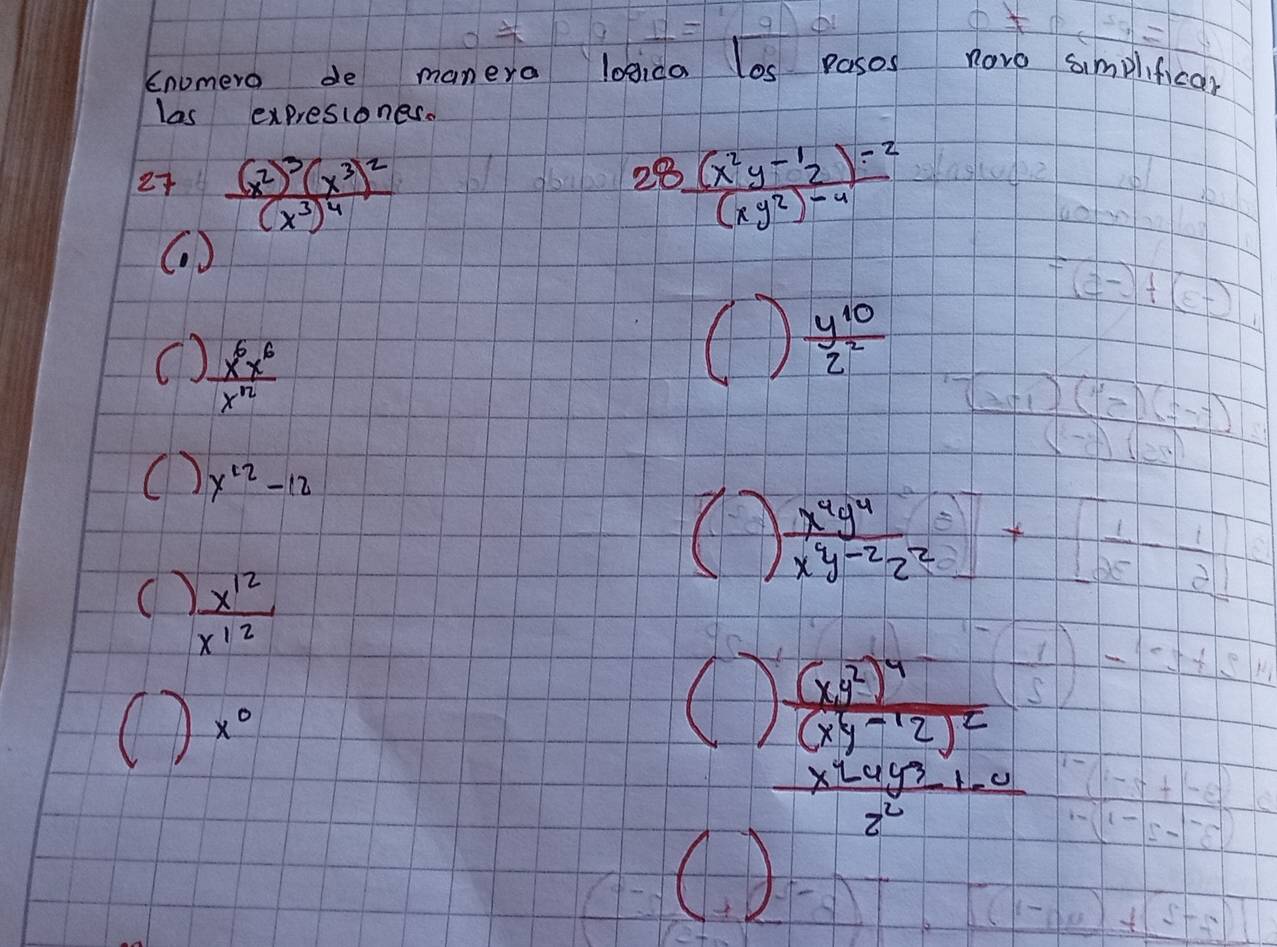 Enumera de manera logica los pasos para simplificar
las expresiones.
27 (x²)³(x³)² / (x³)⁴
28 (x²y⁻¹z)⁻² / (xy²)⁻⁴
(1)
( ) x⁶x⁶ / x¹²
( ) x¹² - 12
( ) x¹² / x¹²
( ) x⁰
( ) y¹⁰ / z²
( ) x⁴y⁴ / x⁴y⁻²z²
( ) (xy²)⁴ / (x²y⁻¹z)²
/ z²
( )